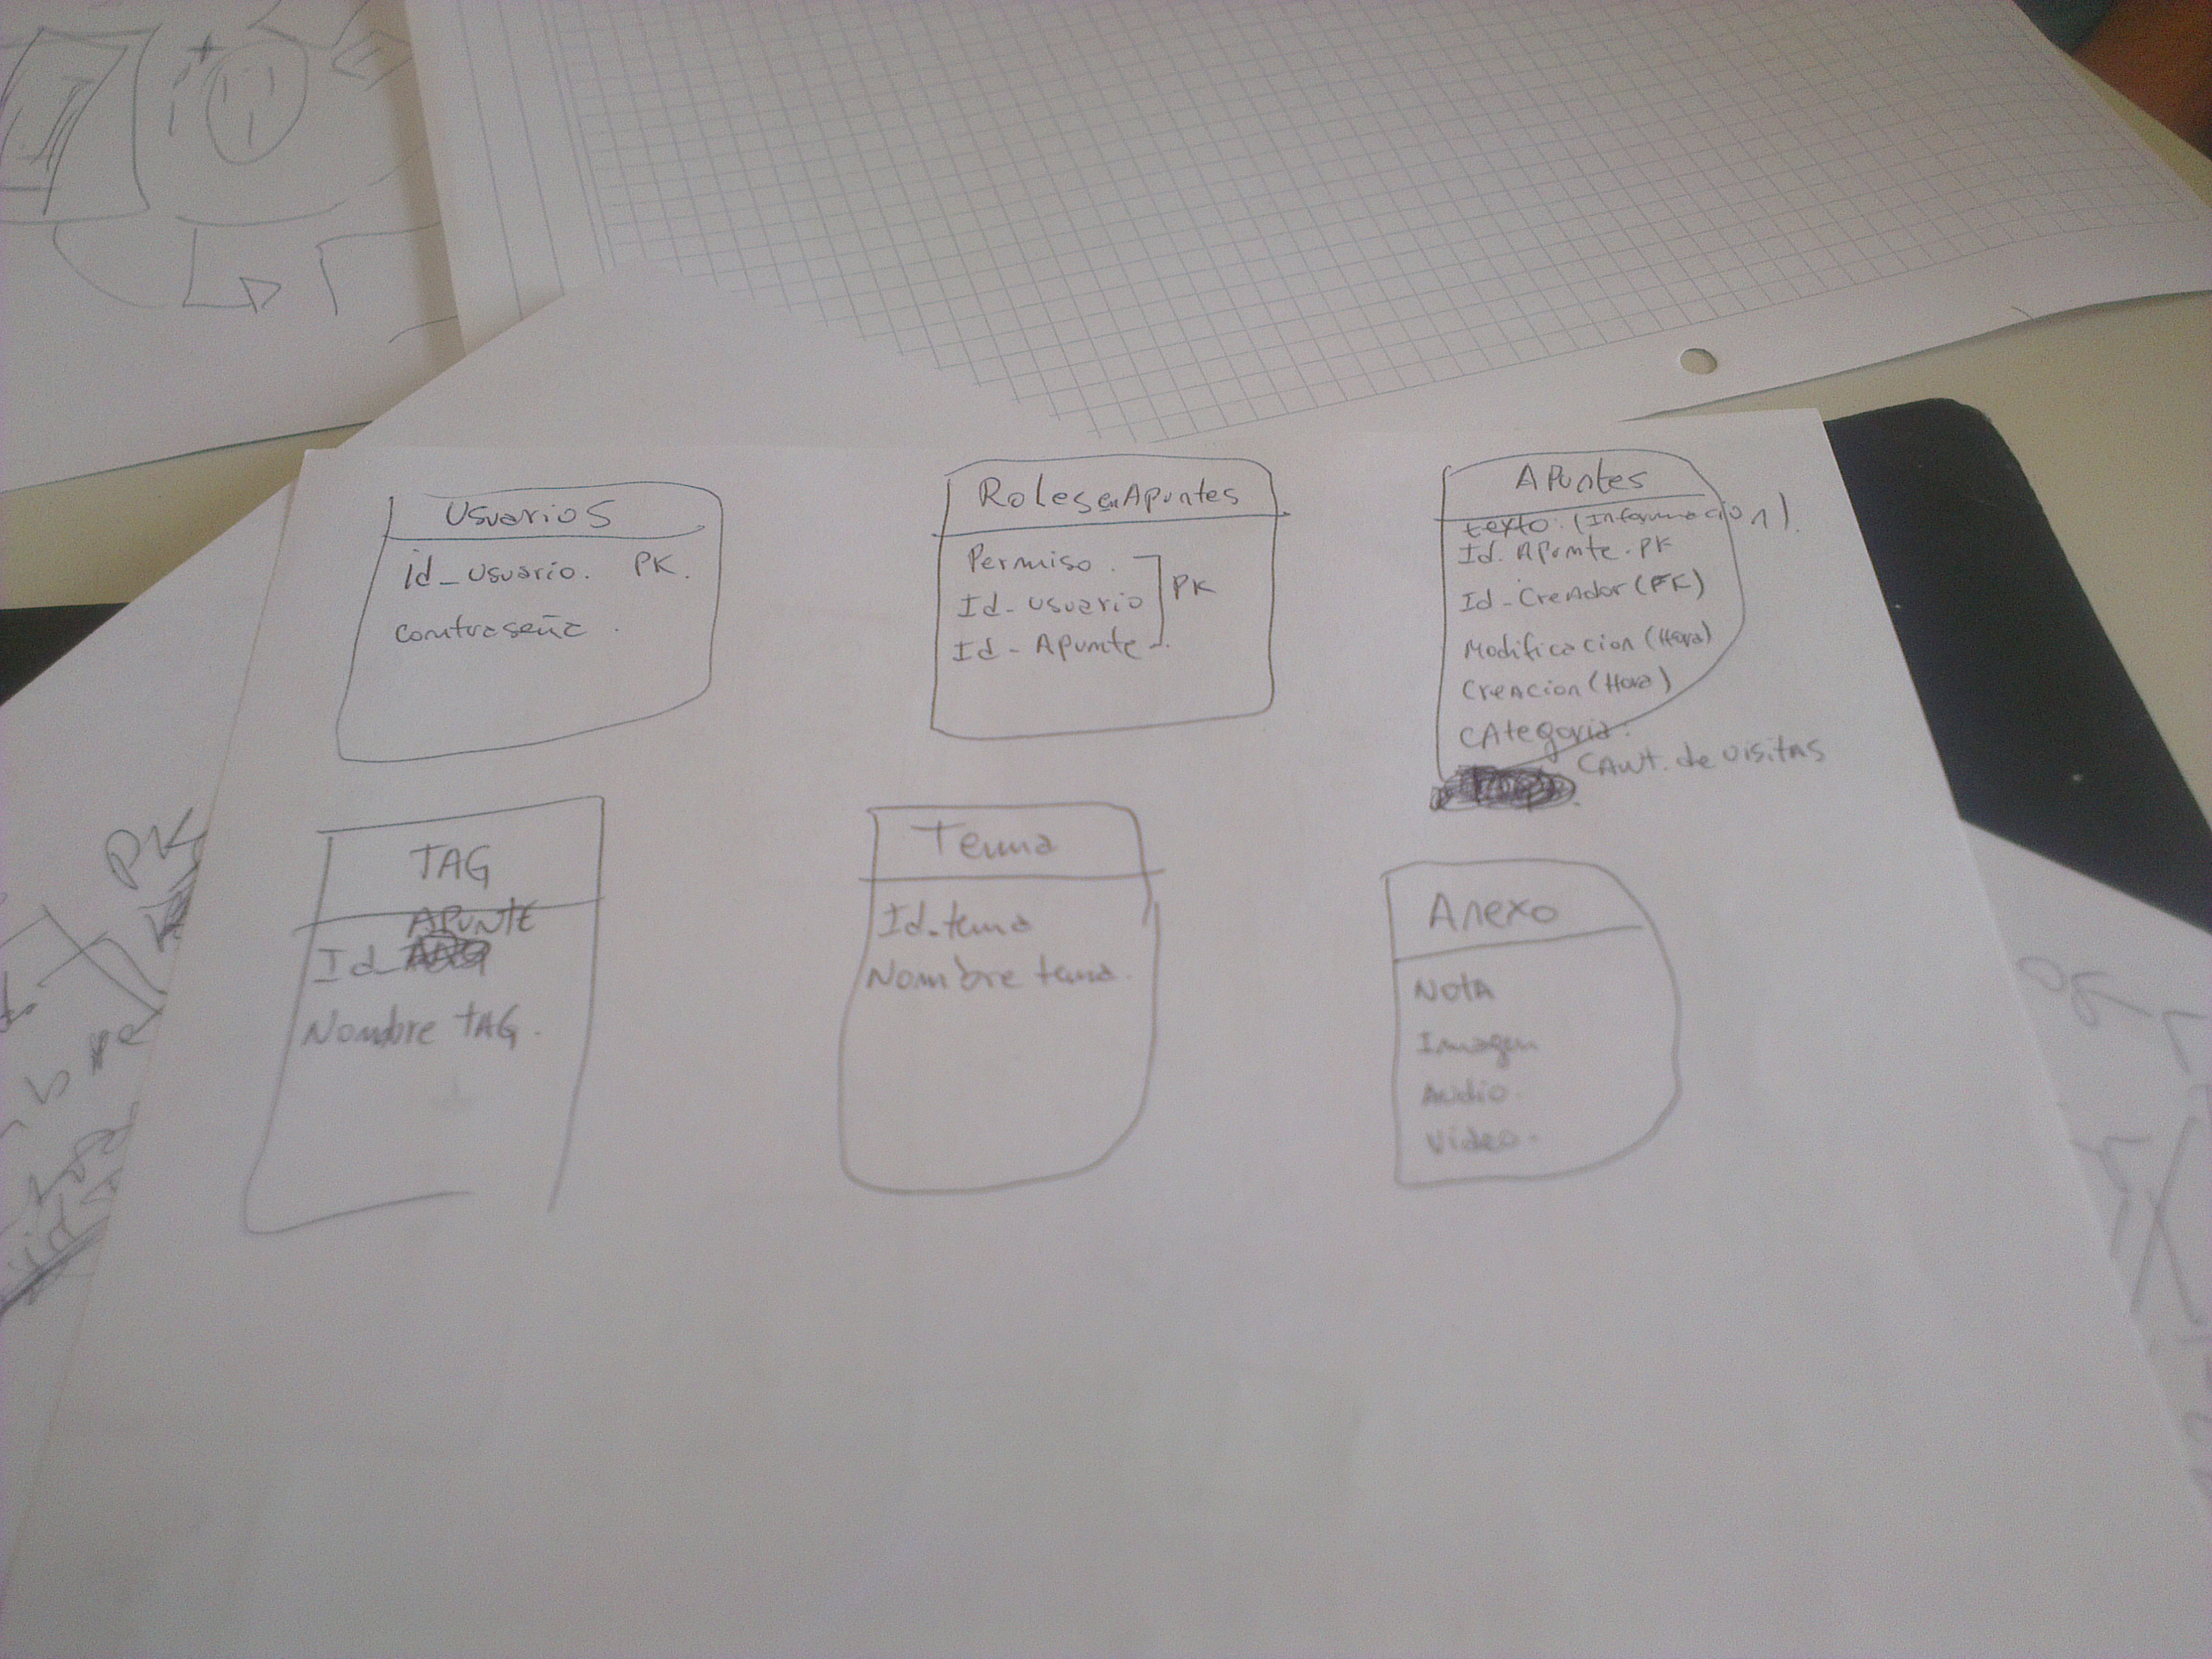 Usuarios
id_usuario. PK.
contraseña.
Roles en Apuntes
Permiso.
Id-usuario
Id-Apunte
PK
APuntes
texto: (Informacion).
Id.Apunte.PK
Id-Creador (FK)
Modificacion (Hora)
Creacion (Hora)
CAtegoria.
CAnt. de visitas
TAG
APUNTE
Id_
Nombre TAG.
Tema
Id_tema
Nombre tema.
Anexo
NotA
Imagen
Audio.
Video.
PK